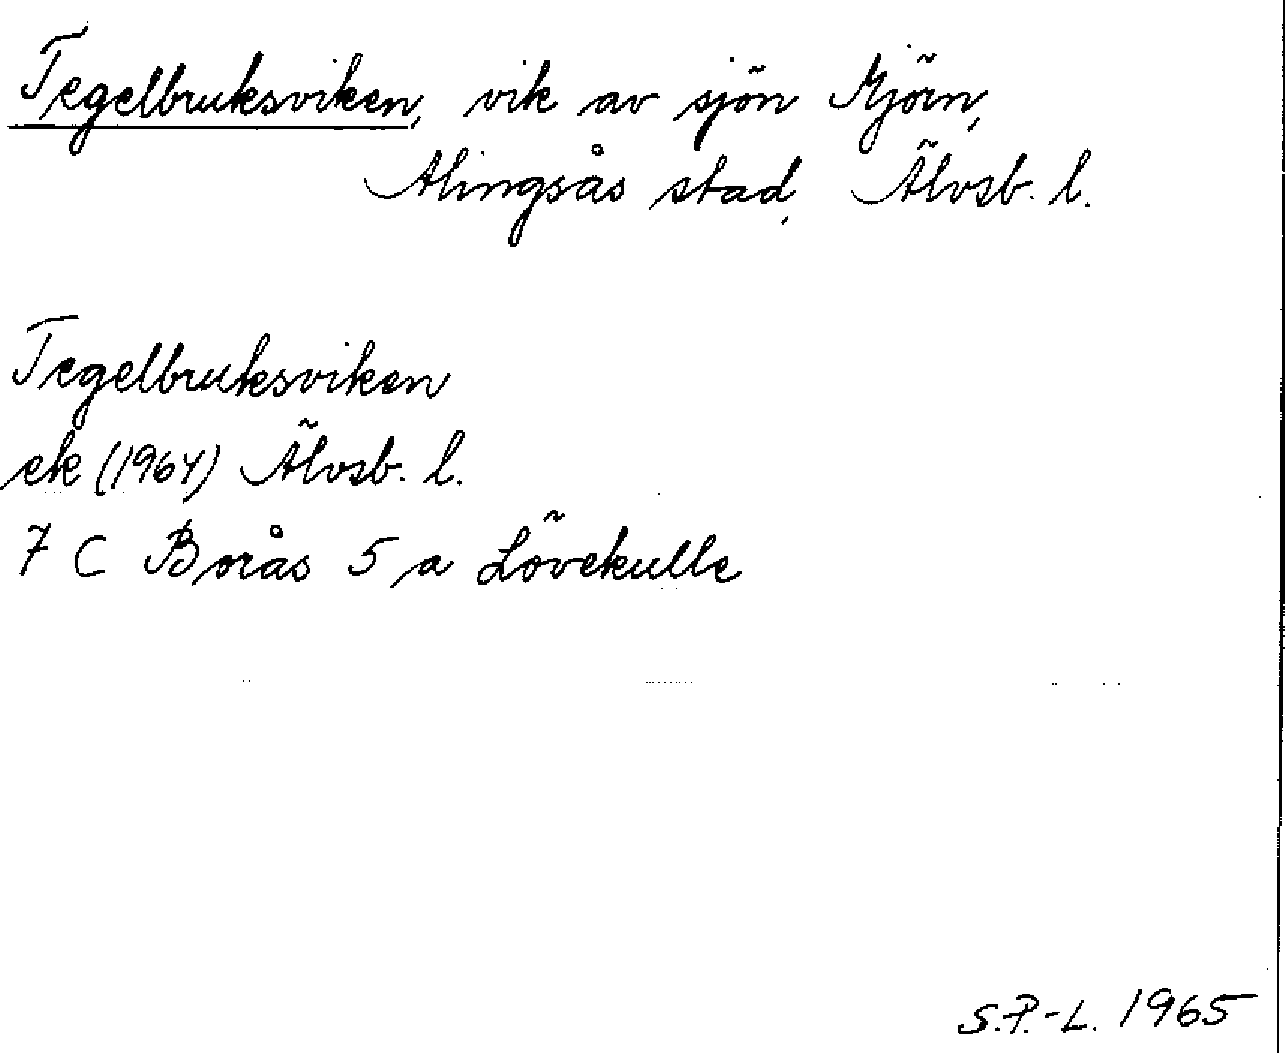 Tegelbruksviken, vik av sjön Mjörn,
Alingsås stad, Älvsb. l.
Tegelbruksviken
ek (1964) Älvsb. l.
7 C Borås 5 a Lövekulle
S.P.-L. 1965